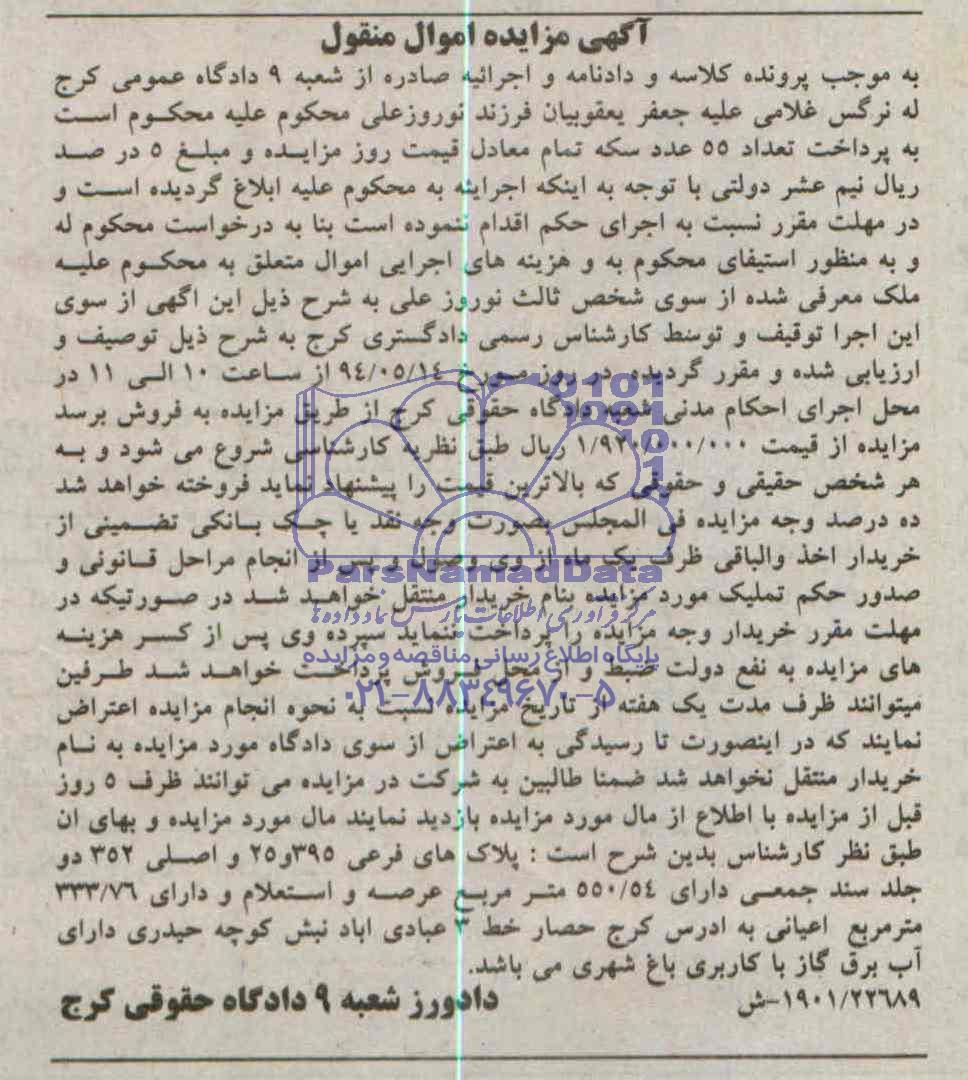 آگهی مزایده اموال منقول
به موجب پرونده کلاسه و دادنامه و اجرائیه صادره از شعبه ۹ دادگاه عمومی کرج
له نرگس غلامی علیه جعفر یعقوبیان فرزند نوروزعلی محکوم علیه محکوم است
به پرداخت تعداد ۵۵ عدد سکه تمام معادل قیمت روز مزایده و مبلغ ۵ در صد
ریال نیم عشر دولتی با توجه به اینکه اجرایئه به محکوم علیه ابلاغ گردیده است و
در مهلت مقرر نسبت به اجرای حکم اقدام ننموده است بنا به درخواست محکوم له
و به منظور استیفای محکوم به و هزینه های اجرایی اموال متعلق به محکوم علیه
ملک معرفی شده از سوی شخص ثالث نوروز علی به شرح ذیل این اگهی از سوی
این اجرا توقیف و توسط کارشناس رسمی دادگستری کرج به شرح ذیل توصیف و
ارزیابی شده و مقرر گردیده در روز مورخ ۹٤/۰۵/۱٤ از ساعت ۱۰ الی ۱۱ در
محل اجرای احکام مدنی شعبه دادگاه حقوقی کرج از طریق مزایده به فروش برسد
مزایده از قیمت ۱/۹۲۰/۰۰۰/۰۰۰ ریال طبق نظریه کارشناسی شروع می شود و به
هر شخص حقیقی و حقوقی که بالاترین قیمت را پیشنهاد نماید فروخته خواهد شد
ده درصد وجه مزایده فی المجلس بصورت وجه نقد یا چک بانکی تضمینی از
خریدار اخذ والباقی ظرف یک ماه از وی وصول و پس از انجام مراحل قانونی و
صدور حکم تملیک مورد مزایده بنام خریدار منتقل خواهد شد در صورتیکه در
مهلت مقرر خریدار وجه مزایده را پرداخت ننماید سپرده وی پس از کسر هزینه
های مزایده به نفع دولت ضبط و از محل فروش پرداخت خواهد شد طرفین
میتوانند ظرف مدت یک هفته از تاریخ مزایده نسبت به نحوه انجام مزایده اعتراض
نمایند که در اینصورت تا رسیدگی به اعتراض از سوی دادگاه مورد مزایده به نام
خریدار منتقل نخواهد شد ضمنا طالبین به شرکت در مزایده می توانند ظرف ۵ روز
قبل از مزایده با اطلاع از مال مورد مزایده بازدید نمایند مال مورد مزایده و بهای ان
طبق نظر کارشناس بدین شرح است : پلاک های فرعی ۳۹۵و۲۵ و اصلی ۳۵۲ دو
جلد سند جمعی دارای ۵۵۰/۵٤ متر مربع عرصه و استعلام و دارای ۳۳۳/۷۶
مترمربع اعیانی به ادرس کرج حصار خط ۳ عبادی اباد نبش کوچه حیدری دارای
آب برق گاز با کاربری باغ شهری می باشد.
دادورز شعبه ۹ دادگاه حقوقی کرج
۱۹۰۱/۲۲۶۸۹-ش
ParsNamadData
مرکز فرآوری اطلاعات پارس نماد داده ها
پایگاه اطلاع رسانی مناقصه و مزایده
۰۲۱-۸۸۳٤۹۶۷۰-۵